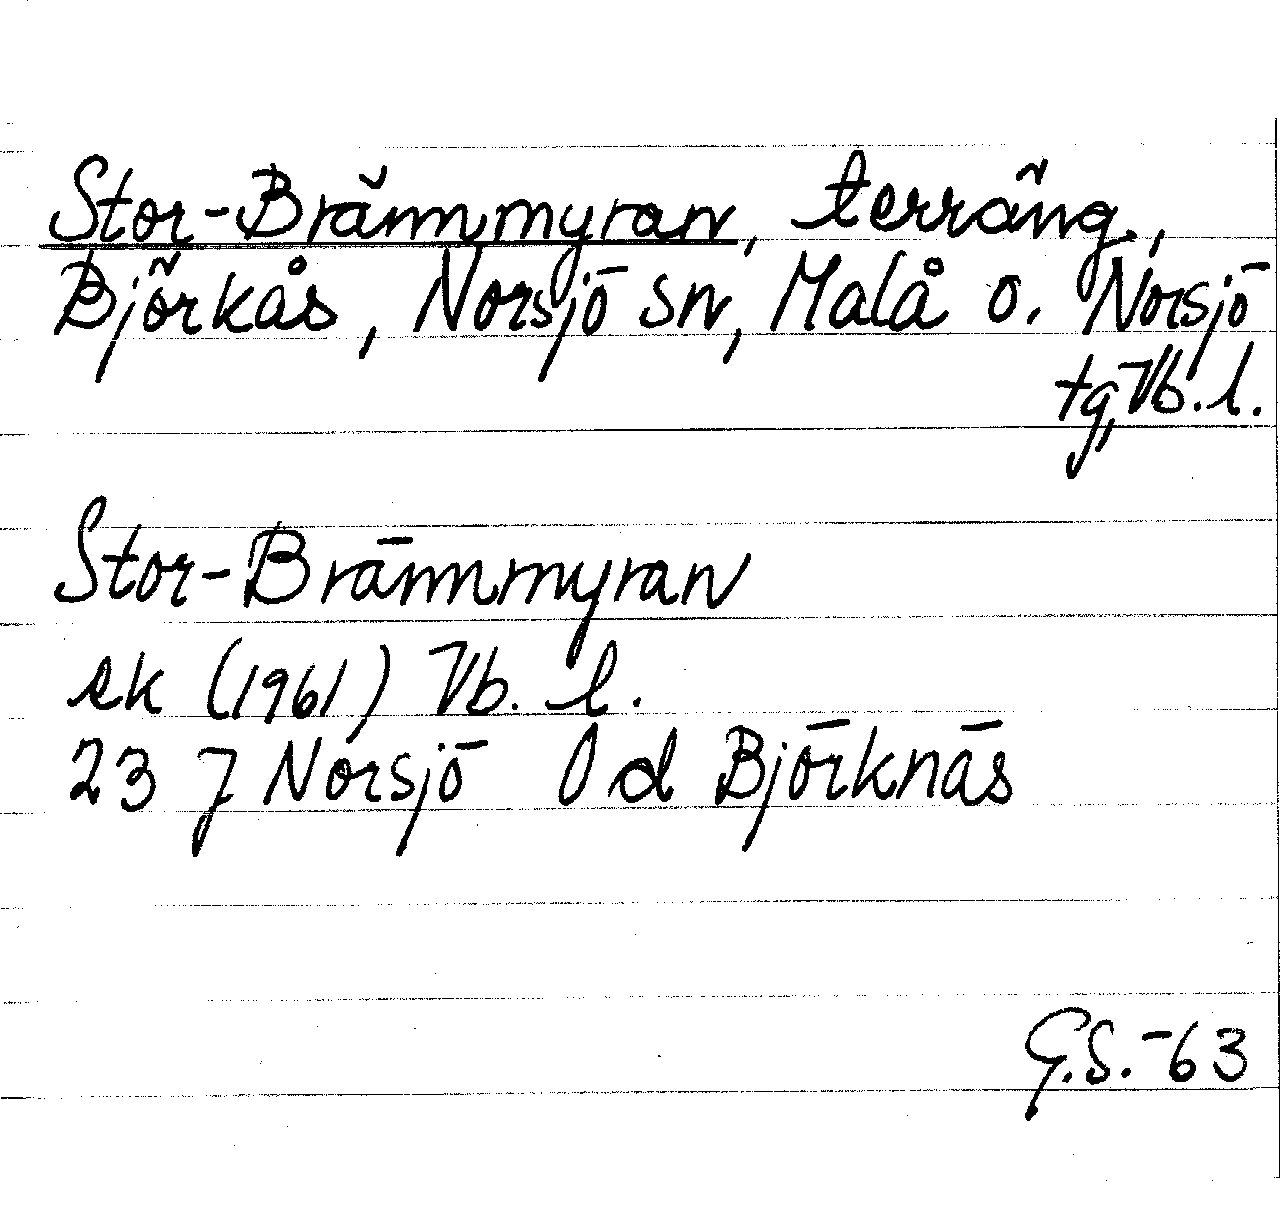 Stor-Brännmyran, terräng.,
Björkås, Norsjö sn, Malå o. Norsjö
tg, Vb. l.
Stor-Brännmyran
ek (1961) Vb. l.
23 J Norsjö 0 d Björknäs
G.S. -63